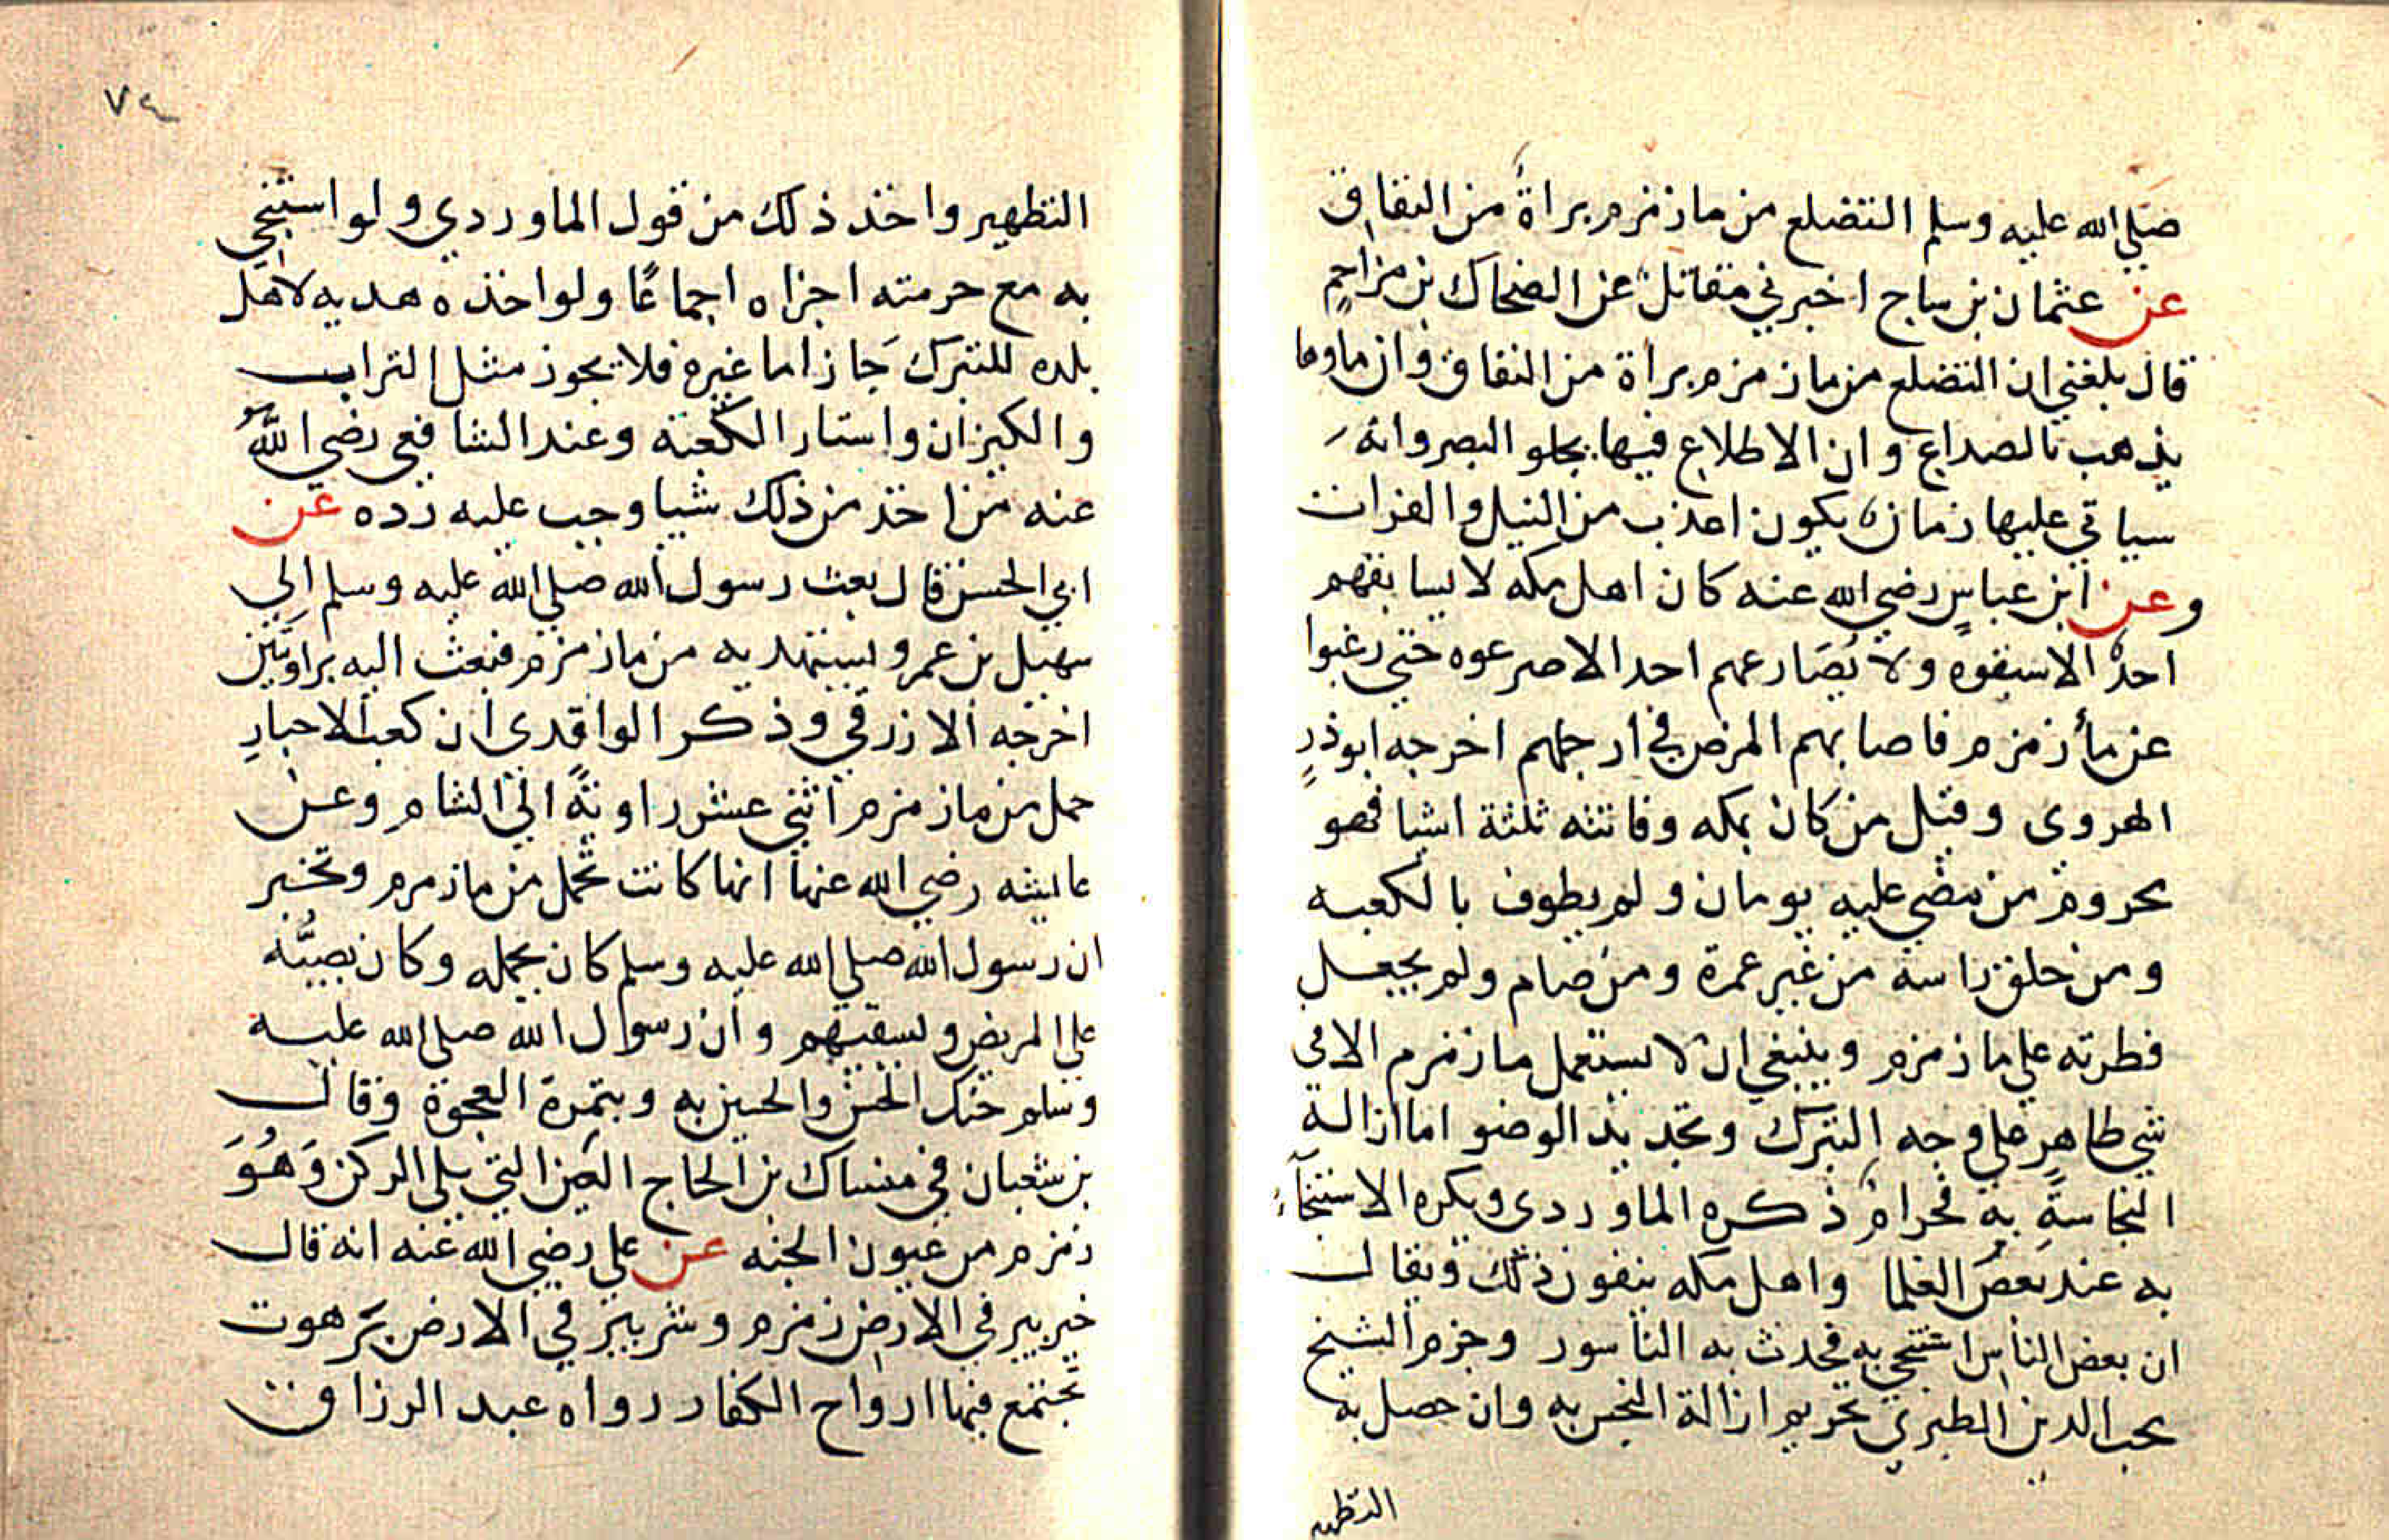 صلي الله عليه وسلم التضلع من ما زمزم براة من النفاق
عن عثمان بن ساج اخبرني مقاتل عن الضحاك بن مزاحم
قال بلغني ان التضلع من ما زمزم براة من النفاق وان ماوها
يذهب بالصداع وان الاطلاع فيها يجلو البصر وانه
سياتي عليها زمان يكون اعذب من النيل والفرات
وعن ابن عباس رضي الله عنه كان اهل مكه لا يسابقهم
احد الا سبقوه ولا يصارعهم احد الا صرعوه حتي رغبوا
عن ماء زمزم فاصابهم المرض في ارجلهم اخرجه ابو ذر
الهروى وقيل من كان بمكه وفاتته ثلثة اشيا فهو
محروم من مضي عليه يومان ولم يطوف بالكعبه
ومن حلق راسه من غير عمرة ومن صام ولم يجعل
فطرته علي ما زمزم وينبغي ان لا يستعمل ما زمزم الا في
شي طاهر علي وجه التبرك وتجديد الوضو اما ازالة
النجاسة به فحرام ذكره الماوردى ويكره الاستنجاء
به عند بعض العلما واهل مكه ينفون ذلك ويقال
ان بعض الناس استنجي به فحدث به الناسور وجزم الشيخ
محب الدين الطبري تحريم ازالة النجس به وان حصل به
التطهير
٧٤
التطهير واخذ ذلك من قول الماوردي ولو استنجي
به مع حرمته اجزاه اجماعًا ولو اخذه هديه لاهل
بلده للتبرك جاز اما غيره فلا يجوز مثل التراب
والكيزان واستار الكعبة وعند الشافعي رضي الله
عنه من اخذ من ذلك شيا وجب عليه رده عن
ابي الحسن قال بعث رسول الله صلي الله عليه وسلم الي
سهيل بن عمرو يستهديه من ما زمزم فبعث اليه براويتين
اخرجه الازرقي وذكر الواقدى ان كعب الاحبار
حمل من ما زمزم اثني عشر راوية الي الشام وعن
عايشه رضي الله عنها انها كانت تحمل من ما زمزم وتخبر
ان رسول الله صلي الله عليه وسلم كان يحمله وكان يصبه
علي المريض ويسقيهم وان رسول الله صلي الله عليه
وسلم حنك الحسن والحسين به وبتمرة العجوة وقال
بن شعبان في منساك بن الحاج العين التي يلي الركن وهو
زمزم من عيون الجنه عن علي رضي الله عنه انه قال
خير بير في الارض زمزم وشر بير في الارض برهوت
تجتمع فيها ارواح الكفار رواه عبد الرزاق